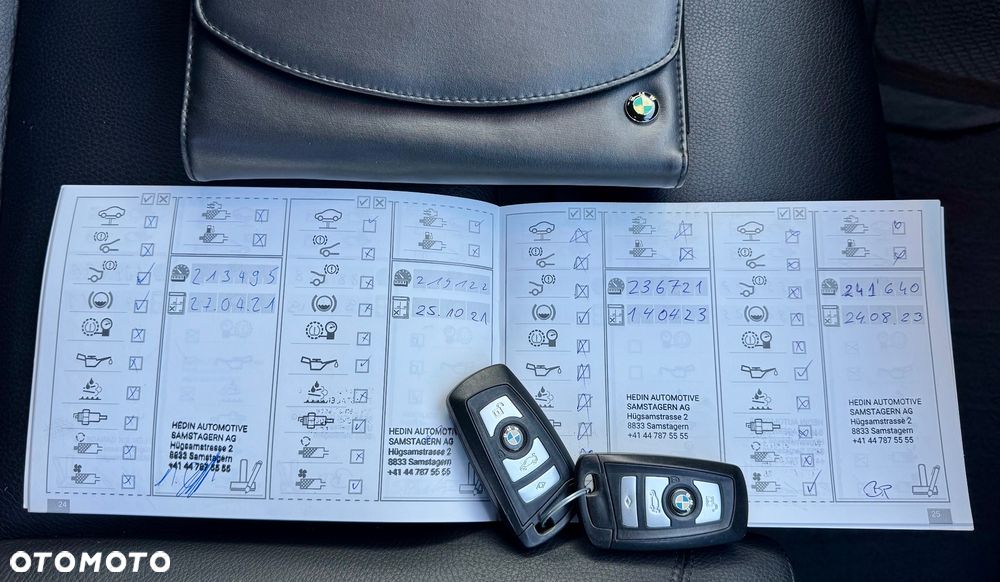 213495
27.04.21
HEDIN AUTOMOTIVE
SAMSTAGERN AG
Hügsamstrasse 2
8833 Samstagern
+41 44 787 55 55
24
219122
25.10.21
HEDIN AUTOMOTIVE
SAMSTAGERN AG
Hügsamstrasse 2
8833 Samstagern
+41 44 787 55 55
236721
140423
HEDIN AUTOMOTIVE
SAMSTAGERN AG
Hügsamstrasse 2
8833 Samstagern
+41 44 787 55 55
241640
24.08.23
HEDIN AUTOMOTIVE
SAMSTAGERN AG
Hügsamstrasse 2
8833 Samstagern
+41 44 787 55 55
25
OTOMOTO